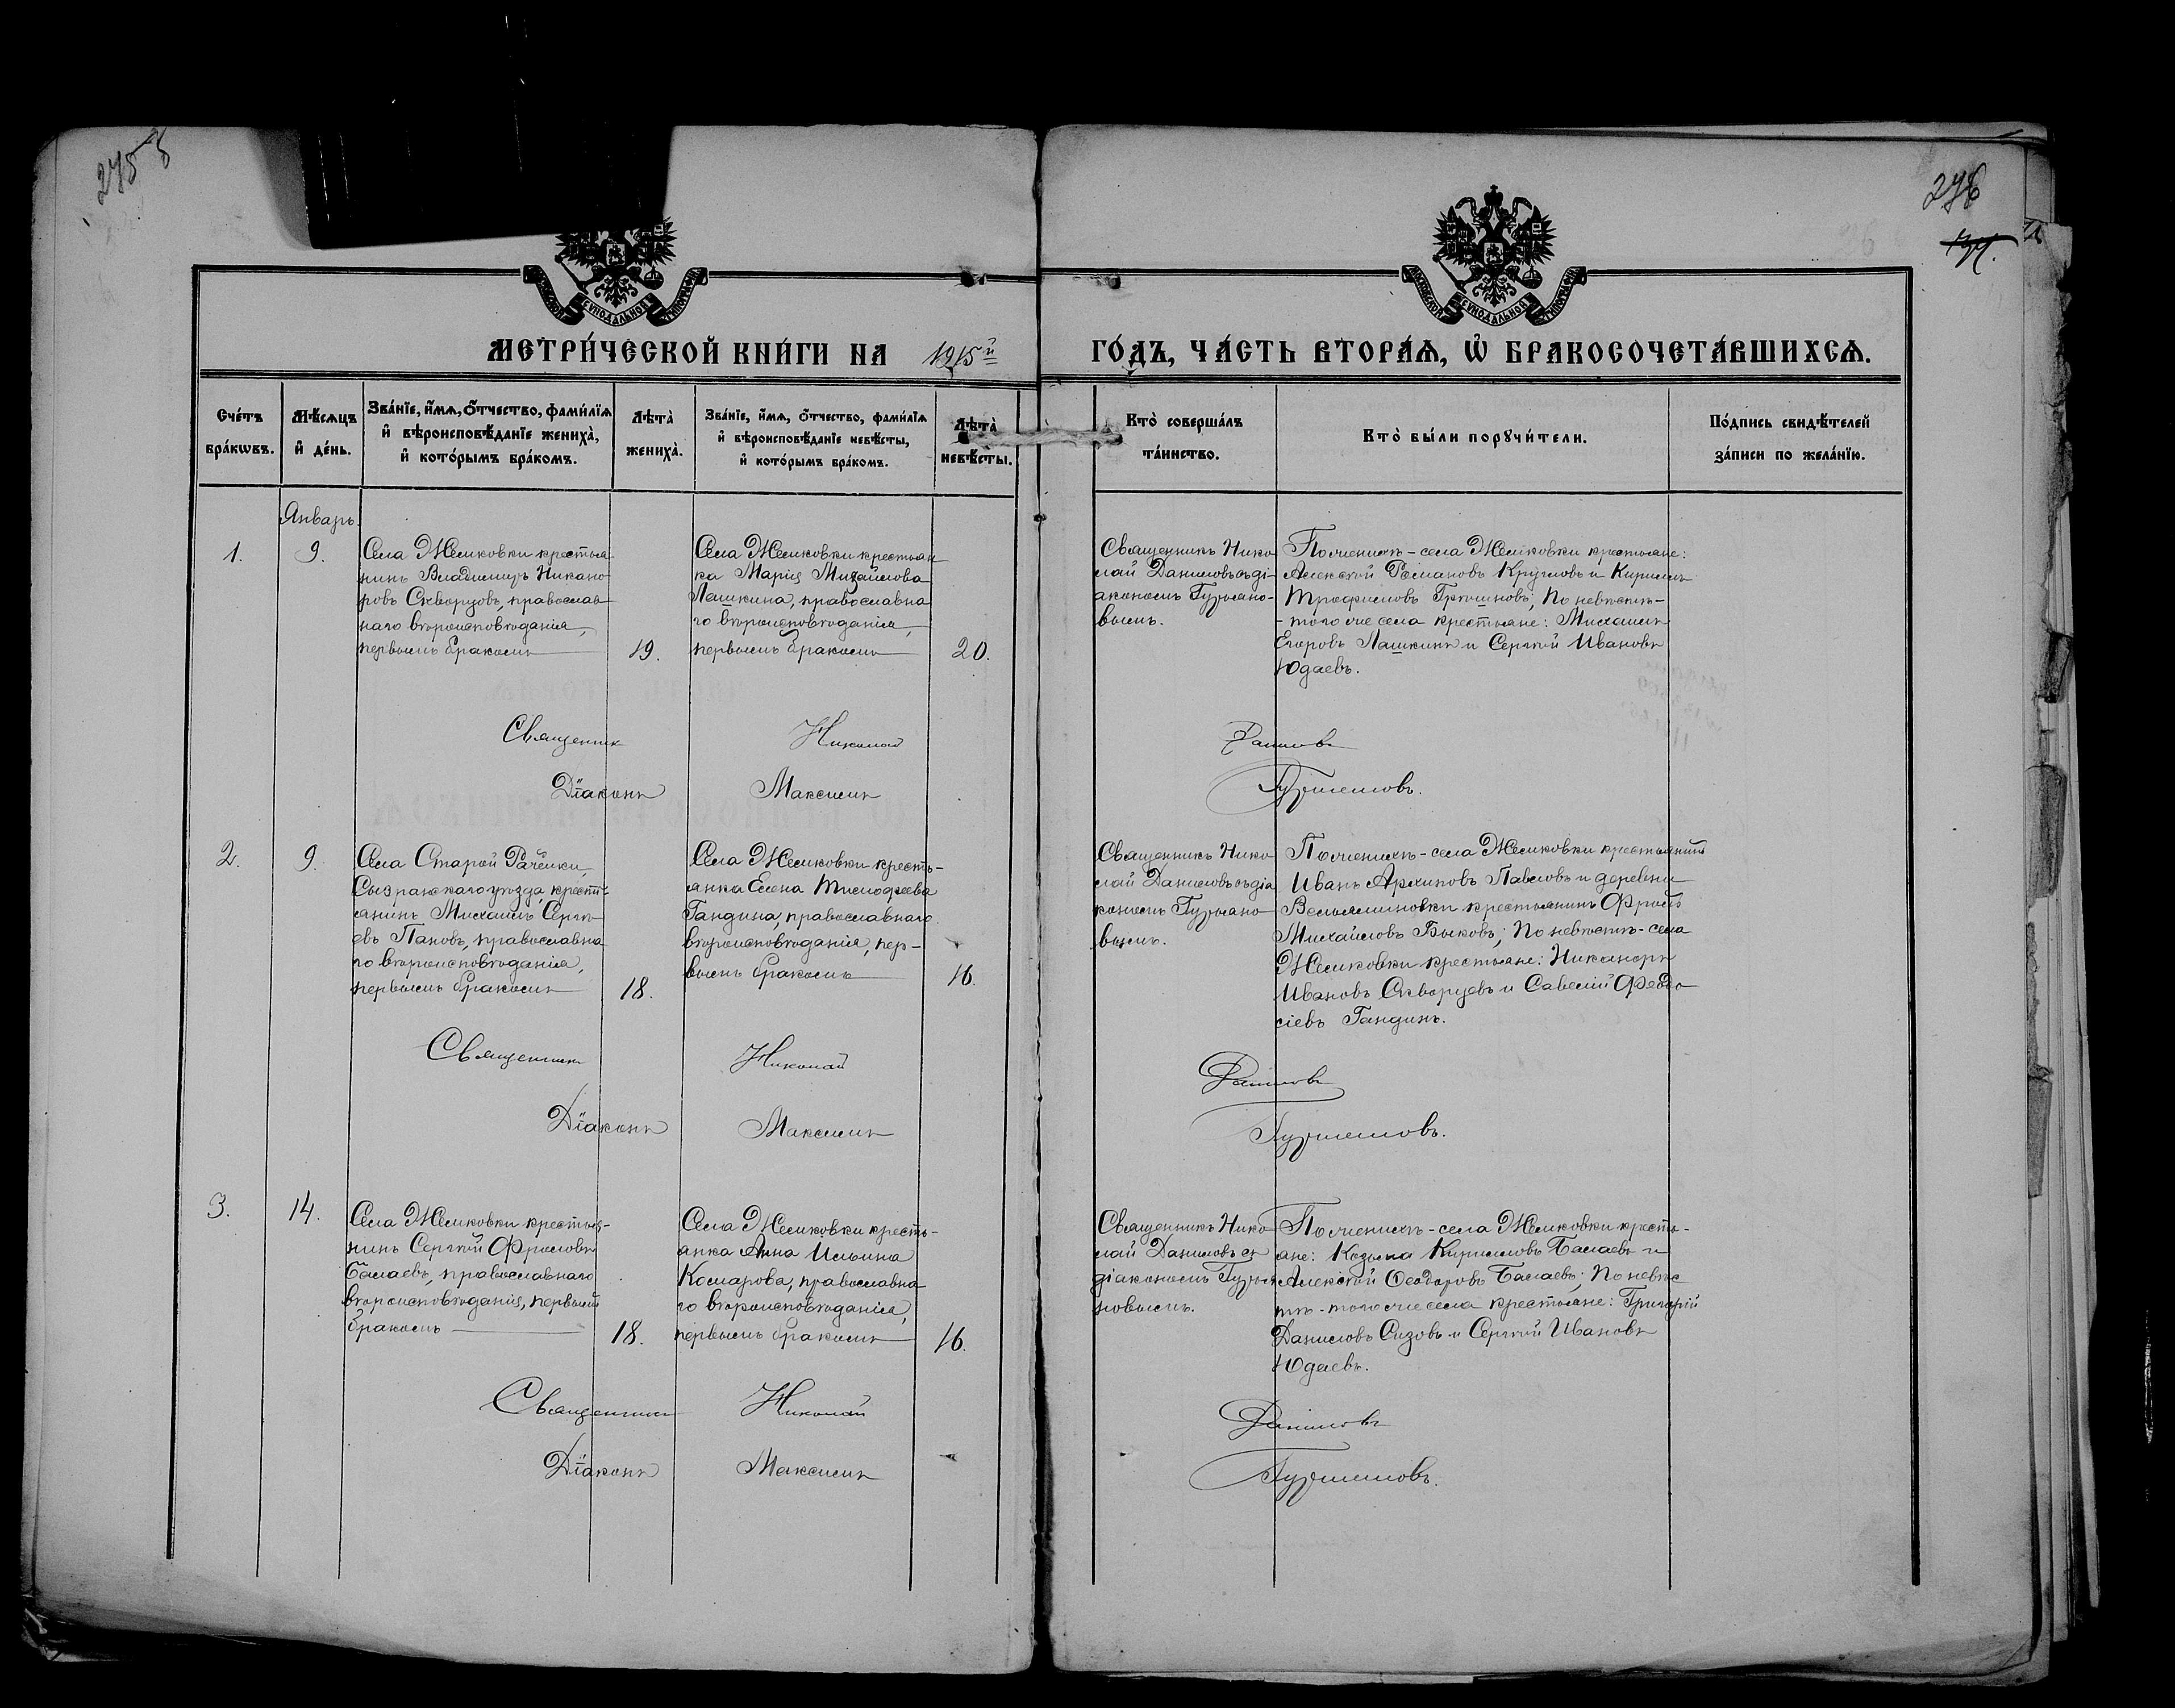 275 об
276
МЕТРИ́ЧЕСКОЙ КНИ́ГИ НА 1915й ГО́ДЪ, ЧА́СТЬ ВТОРА́Я, Ѡ БРАКОСОЧЕТА́ВШИХСЯ.
Сче́тъ бра́кωвъ.
Мѣ́сяцъ и҆ де́нь.
Зва́нїе, и҆́мя, ѻ҆́тчество, фами́лїя
и҆ вѣроисповѣ́данїе жениха̀,
и҆ кото́рымъ бра́комъ.
Лѣта̀ жениха̀.
Зва́нїе, и҆́мя, ѻ҆́тчество, фами́лїя
и҆ вѣроисповѣ́данїе невѣ́сты,
и҆ кото́рымъ бра́комъ.
Лѣта̀ невѣ́сты.
Кто̀ соверша́лъ
та́инство.
Кто̀ бы́ли порꙋчи́тели.
По́дпись свидѣ́телей
за́писи по жела́нїю.
Январь.
1.
9.
Села Жемковки крестья-
нинъ Владимиръ Никано-
ровъ Скворцовъ, православ-
наго вѣроисповѣданія,
первымъ бракомъ
19.
Села Жемковки крестьян-
ка Марія Михайлова
Лашкина, православна-
го вѣроисповѣданія,
первымъ бракомъ
20.
Священникъ Нико-
лай Даниловъ съ ді-
акономъ Гурьяно-
вымъ.
По женихѣ - села Жемковки крестьяне:
Алексѣй Романовъ Кругловъ и Кириллъ
Трофимовъ Гришновъ; по невѣстѣ -
- того же села крестьяне: Михаилъ
Егоровъ Лашкинъ и Сергѣй Ивановъ
Юдаевъ.
Священник Николай Данилов
Діаконъ Максимъ
2.
9.
Села Старой Рачейки,
Сызранскаго уѣзда, кресть-
янинъ Михаилъ Сергѣ-
евъ Пановъ, православна-
го вѣроисповѣданія,
первымъ бракомъ
18.
Села Жемковки кресть-
янка Елена Тимофеева
Гандина, православнаго
вѣроисповѣданія, пер-
вымъ бракомъ
16.
Священникъ Нико-
лай Даниловъ съ діа
кономъ Гурьяно-
вымъ.
По женихѣ - села Жемковки крестьянинъ
Иванъ Архиповъ Павловъ и деревни
Вельяминовки крестьянинъ Фролъ
Михайловъ Быковъ; по невѣстѣ - села
Жемковки крестьяне: Никаноръ
Ивановъ Скворцовъ и Савелій Феодо-
сіевъ Гандинъ.
Священникъ Николай Данилов
Діаконъ Максимъ
3.
14.
Села Жемковки крестья-
нинъ Сергѣй Фроловъ
Балаевъ, православнаго
вѣроисповѣданія, первымъ
бракомъ
18.
Села Жемковки кресть-
янка Анна Ильина
Комарова, православна-
го вѣроисповѣданія,
первымъ бракомъ
16.
Священникъ Нико-
лай Даниловъ съ
діакономъ Гурья-
новымъ.
По женихѣ - села Жемковки кресть-
яне: Козьма Кирилловъ Балаевъ и
Алексѣй Ѳеодоровъ Балаевъ; по невѣс
тѣ - того же села крестьяне: Григорій
Даниловъ Сизовъ и Сергѣй Ивановъ
Юдаевъ.
Священникъ Николай Данилов
Діаконъ Максимъ